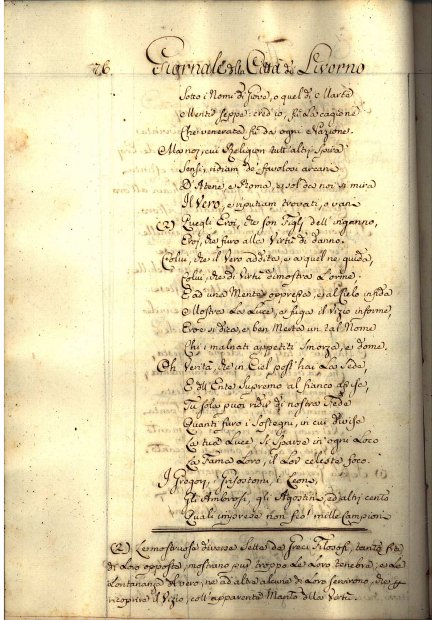 26. Giornale della Città di Livorno
Sotto i Nomi di Giove, o quel di Marte
Mentir seppe: cred'io, fu la cagione
Che venerata fu da ogni Nazione.
Ma noi, cui Religion tutt'altri spira
Sensi, ridiam de' favolosi arcani
D'Atene, e Roma, e sol da noi si mira
Il Vero, e si putian trovati, a vani
(2) Quegli Eroi, che son Figlj dell'inganno,
Eroi, che furo alla Virtù di danno.
Colui, che il Vero addita, e a quel ne guida,
Colui, che di Virtù dimostra l'orme.
E ad una Mente oppressa, e al Cielo infida
Mostra la Luce, e fuga il vizio informe,
Eroe si dica, e ben Merta un tal Nome
Chi i malnati appetiti smorza, e dome.
Oh Verità, che in Ciel post'hai la Sede,
E dell'Ente Supremo al fianco assise,
Tu sola puoi ridir di nostra Fede
Quanti furo i Sostegni, in cui divise
La tua Luce si sparse in ogni Loco
La Fama Loro, il Lor celeste foco.
I Gregorj, Grisostomi, i Leone,
Gli Ambrosi, gli Agostini, ed altri cento
Quali imprese non feo! mille Campioni
(2) Le mostruose diverse Sette de Greci Filosofi, tanto fra
di Loro opposte, mostrano pur troppo le Loro tenebre, e la
Lontananza dal vero; ne ad altro alcune di Loro servirono, che a
ricoprire il Vizio, coll'apparente Manto della Virtù.